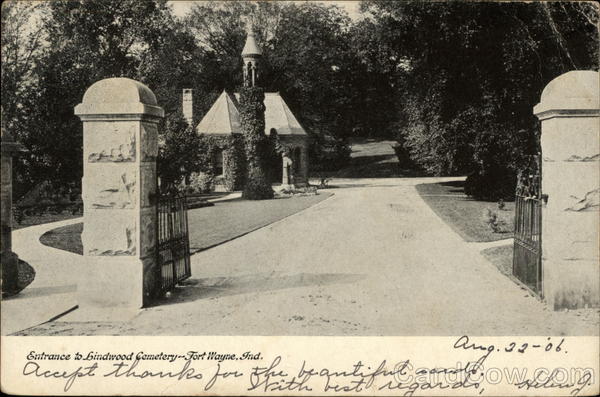 Entrance to Lindwood Cemetery--Fort Wayne, Ind.
Aug. 22-'06.
Accept thanks for the beautiful cards,
With best regards, Helen J.
CardCow.com